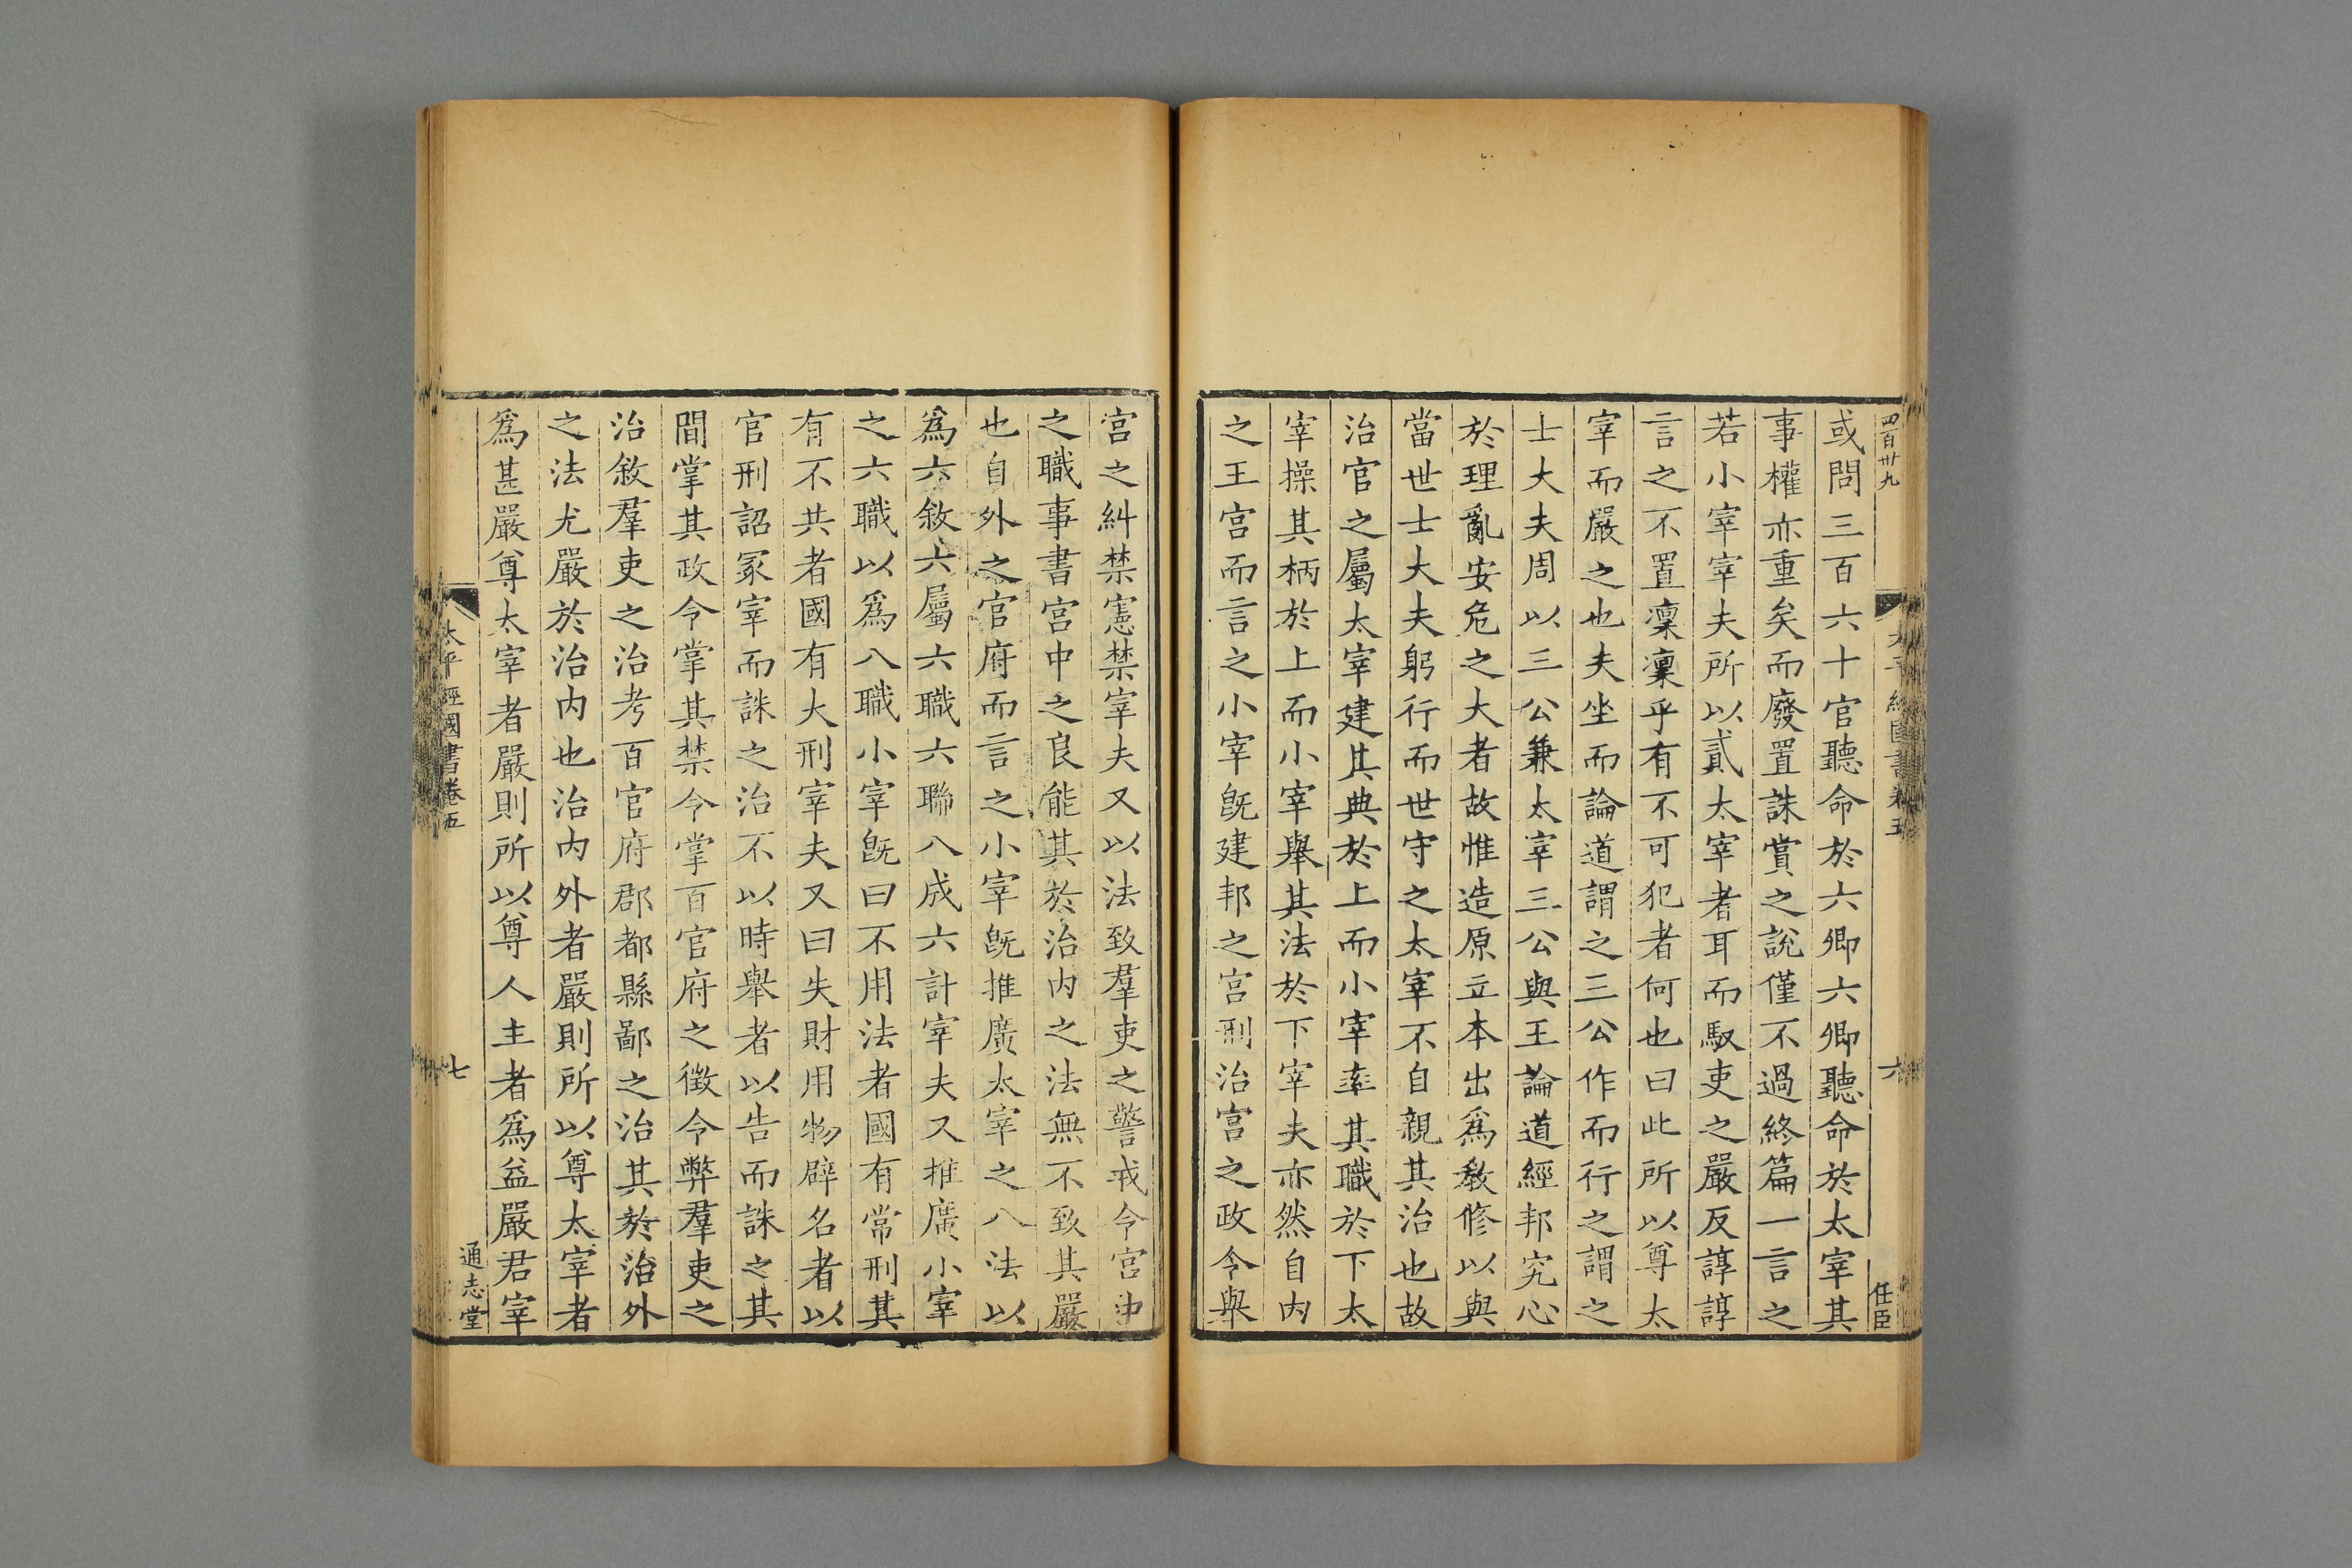 四百卅九
太平經國書卷五
六
任臣
或問三百六十官聽命於六卿六卿聽命於太宰其
事權亦重矣而廢置誅賞之說僅不過終篇一言之
若小宰宰夫所以貳太宰者耳而馭吏之嚴反諄諄
言之不置凜凜乎有不可犯者何也曰此所以尊太
宰而嚴之也夫坐而論道謂之三公作而行之謂之
士大夫周以三公兼太宰三公與王論道經邦究心
於理亂安危之大者故惟造原立本出爲教修以與
當世士大夫躬行而世守之太宰不自親其治也故
治官之屬太宰建其典於上而小宰率其職於下太
宰操其柄於上而小宰舉其法於下宰夫亦然自內
之王宮而言之小宰旣建邦之宮刑治宮之政令與
宮之糾禁憲禁宰夫又以法致羣吏之警戒令宮中
之職事書宮中之良能其於治內之法無不致其嚴
也自外之官府而言之小宰旣推廣太宰之八法以
爲六敘六屬六職六聯八成六計宰夫又推廣小宰
之六職以爲八職小宰旣曰不用法者國有常刑其
有不共者國有大刑宰夫又曰失財用物辟名者以
官刑詔冢宰而誅之治不以時舉者以告而誅之其
間掌其政令掌其禁令掌百官府之徵令弊羣吏之
治敘羣吏之治考百官府郡都縣鄙之治其於治外
之法尤嚴於治內也治內外者嚴則所以尊太宰者
爲甚嚴尊太宰者嚴則所以尊人主者爲益嚴君宰
太平經國書卷五
七
通志堂